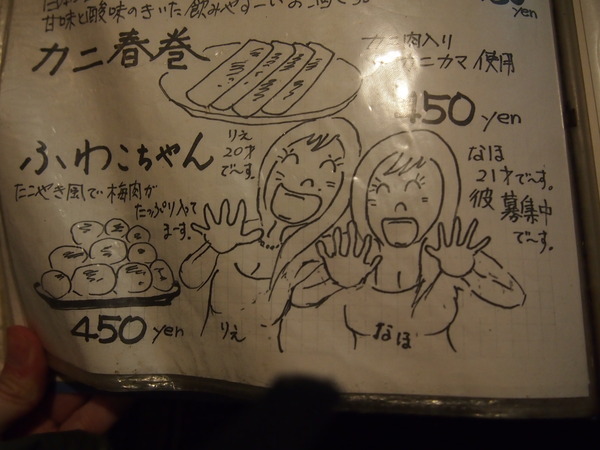 甘味と酸味のきいた飲みやすーいお酒です。
yen
カニ春巻
カニ肉入り
カニカマ使用
450 yen
ふわこちゃん
たこやき風で梅肉が
たっぷり入ってまーす。
450 yen
りえ
20才
で〜す。
なほ
21才で〜す。
彼募集中
で〜す。
りえ
なほ